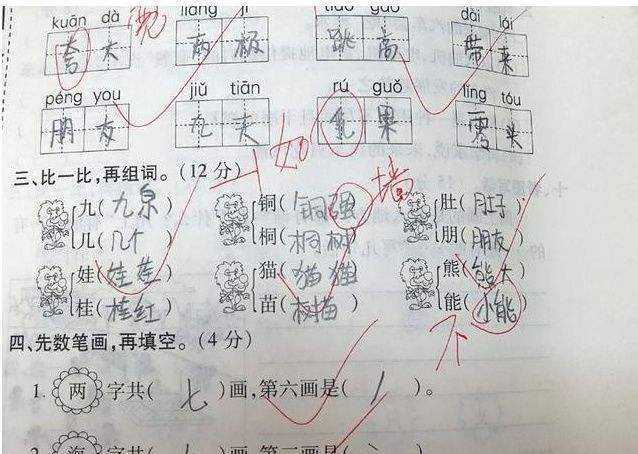 kuān dà liǎng jí tiào gāo dài lái
夸大 两极 跳高 带来
péng you jiǔ tiān rú guǒ líng tóu
朋友 九天 果 零头
如
三、比一比,再组词。(12 分)
九(九泉) 铜(铜强) 墙 肚(肚子)
几(几个) 桐(桐树) 朋(朋友)
娃(娃) 猫(猫猫) 熊(熊大)
桂(桂红) 苗(树苗) 能(小能) 不
四、先数笔画,再填空。(4 分)
1. 两 字共( 七 )画,第六画是( 丿 )。
字共( )画,第二画是(